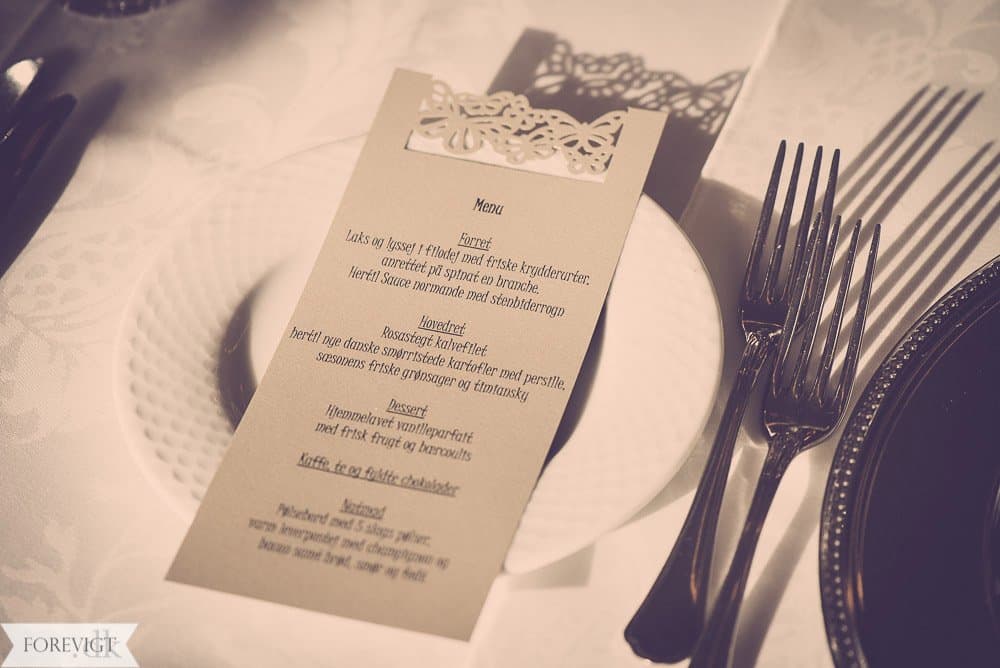 Menu
Forret
Laks og lyssej i filodej med friske krydderurter,
anrettet på spinat en branche.
Hertil Sauce normande med stenbiderrogn
Hovedret
Rosastegt kalvefilet
hertil nye danske smørristede kartofler med persille,
sæsonens friske grønsager og timiansky
Dessert
Hjemmelavet vanilleparfait
med frisk frugt og bærcoulis
Kaffe, te og fyldte chokolader
Natmad
Pølsebord med 5 slags pølser,
varm leverpostej med champignon og
bacon samt brød, smør og fedt
FOREVIGT
.dk